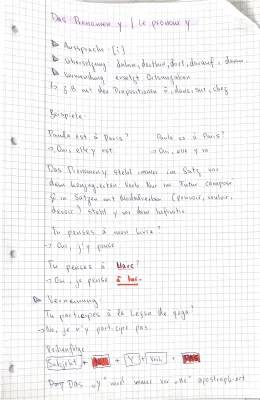 Das Pronomen y / le pronom y
Aussprache: [i]
Übersetzung dahin, dorthin, dort, darauf, daran
Verwendung ersetzt Ortsangaben
z.B. mit den Präpositionen à, dans, sur, chez
Beispiele
Paula est à Paris? Paula va à Paris?
Oui, elle y est Oui, elle y va
Das Pronomen y steht immer im Satz vor
dem konjugierten Verb. Nur im Futur composé
& in Sätzen mit Modalverben (pouvoir, vouloir,
devoir) steht y vor dem Infinitiv
Tu penses à mon livre?
Oui, j'y pense
Tu penses à Marc?
Oui, je pense à lui.
Verneinung
Tu participes à la leçon de yoga?
No, je n'y participe pas.
Reihenfolge
Subjekt + + Y + Verb +
Das "y" wird immer vor "ne" apostroph-ert